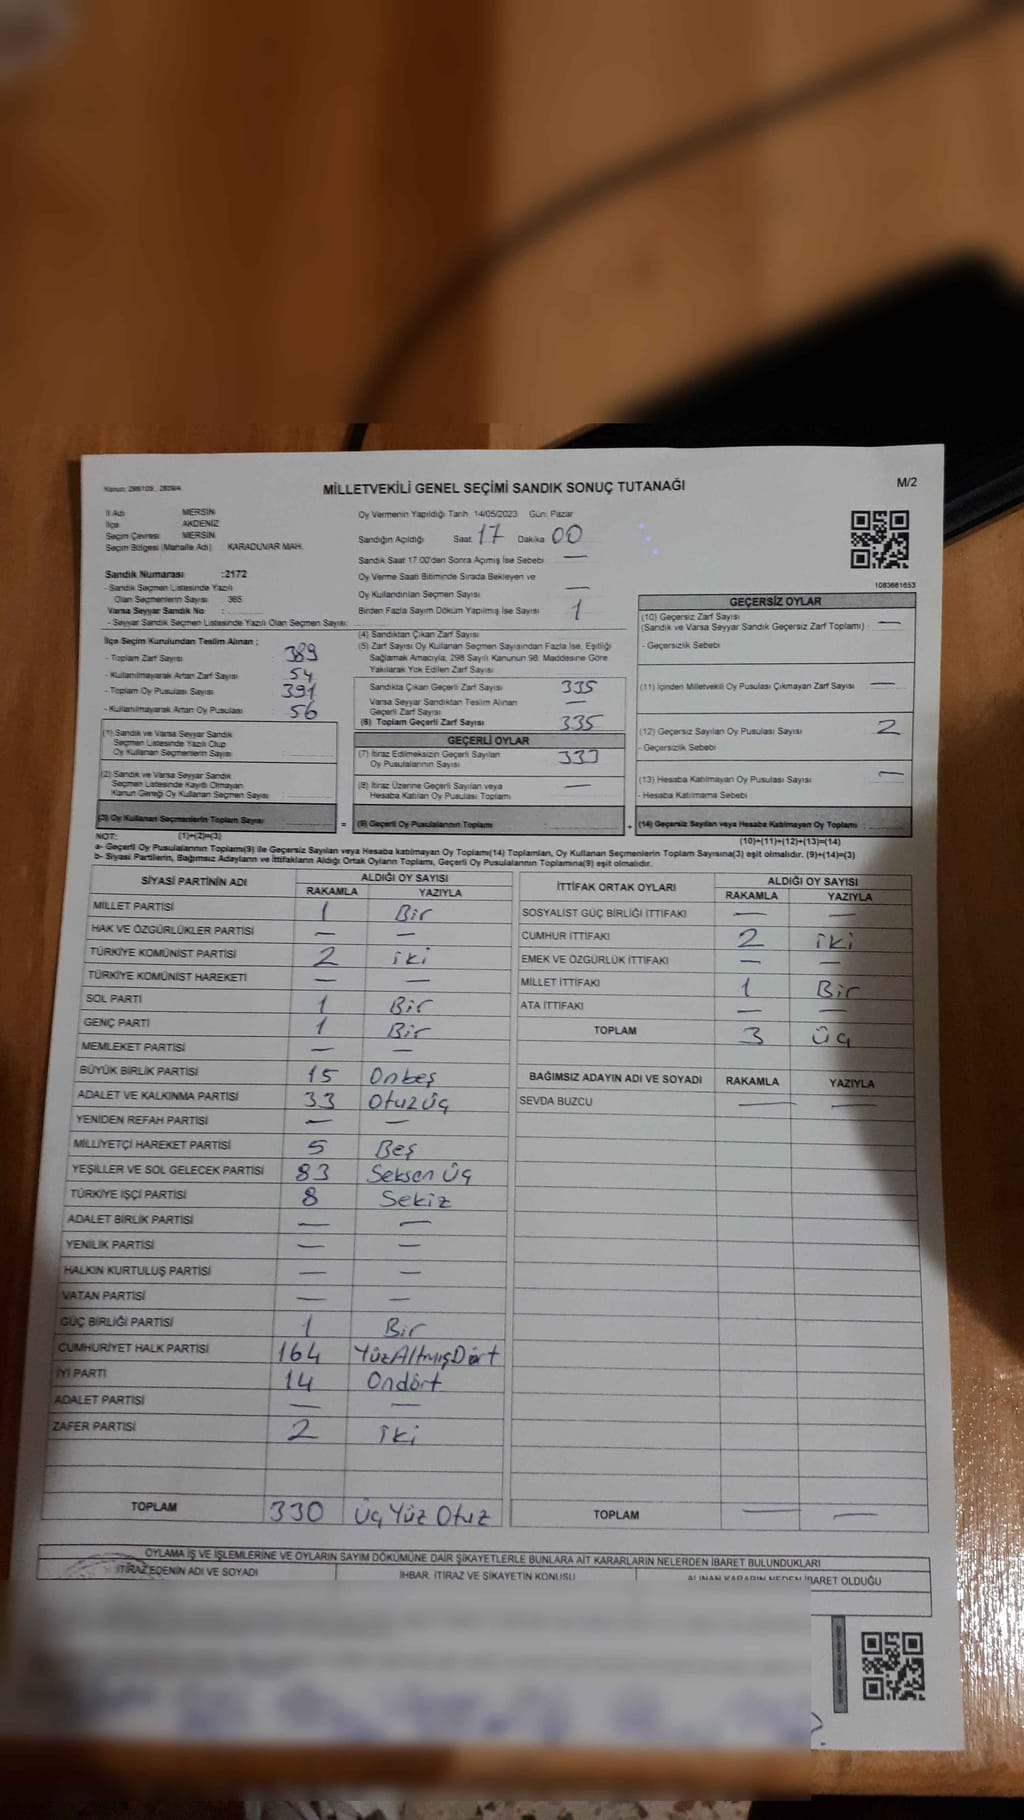 Kanun: 298/105, 2839/4
MİLLETVEKİLİ GENEL SEÇİMİ SANDIK SONUÇ TUTANAĞI
M/2
İl Adı MERSİN
İlçe AKDENİZ
Seçim Çevresi MERSİN
Seçim Bölgesi (Mahalle Adı) KARADUVAR MAH.
Oy Vermenin Yapıldığı Tarih 14/05/2023 Gün: Pazar
Sandığın Açıldığı Saat 17 Dakika 00
Sandık Saat 17:00'den Sonra Açımış İse Sebebi —
Oy Verme Saati Bitiminde Sırada Bekleyen ve
Oy Kullandırılan Seçmen Sayısı —
Birden Fazla Sayım Döküm Yapılmış İse Sayısı 1
1083681653
Sandık Numarası :2172
- Sandık Seçmen Listesinde Yazılı
Olan Seçmenlerin Sayısı 365
Varsa Seyyar Sandık No :
- Seyyar Sandık Seçmen Listesinde Yazılı Olan Seçmen Sayısı:
İlçe Seçim Kurulundan Teslim Alınan ;
- Toplam Zarf Sayısı 389
- Kullanılmayarak Artan Zarf Sayısı 54
- Toplam Oy Pusulası Sayısı 391
- Kullanılmayarak Artan Oy Pusulası 56
(1) Sandık ve Varsa Seyyar Sandık
Seçmen Listesinde Yazılı Olup
Oy Kullanan Seçmenlerin Sayısı :
(2) Sandık ve Varsa Seyyar Sandık
Seçmen Listesinde Kayıtlı Olmayan
Kanun Gereği Oy Kullanan Seçmen Sayısı :
(3) Oy Kullanan Seçmenlerin Toplam Sayısı
(4) Sandıktan Çıkan Zarf Sayısı
(5) Zarf Sayısı Oy Kullanan Seçmen Sayısından Fazla İse, Eşitliği
Sağlamak Amacıyla, 298 Sayılı Kanunun 98. Maddesine Göre
Yakılarak Yok Edilen Zarf Sayısı
Sandıkta Çıkan Geçerli Zarf Sayısı 335
Varsa Seyyar Sandıktan Teslim Alınan
Geçerli Zarf Sayısı —
(6) Toplam Geçerli Zarf Sayısı 335
GEÇERLİ OYLAR
(7) İtiraz Edilmeksizin Geçerli Sayılan
Oy Pusulalarının Sayısı 333
(8) İtiraz Üzerine Geçerli Sayılan veya
Hesaba Katılan Oy Pusulası Toplamı —
= (9) Geçerli Oy Pusulalarının Toplamı
GEÇERSİZ OYLAR
(10) Geçersiz Zarf Sayısı
(Sandık ve Varsa Seyyar Sandık Geçersiz Zarf Toplamı) : —
- Geçersizlik Sebebi
(11) İçinden Milletvekili Oy Pusulası Çıkmayan Zarf Sayısı —
(12) Geçersiz Sayılan Oy Pusulası Sayısı 2
- Geçersizlik Sebebi
(13) Hesaba Katılmayan Oy Pusulası Sayısı —
- Hesaba Katılmama Sebebi
+ (14) Geçersiz Sayılan veya Hesaba Katılmayan Oy Toplamı :
NOT: (1)+(2)=(3)
(10)+(11)+(12)+(13)=(14)
a- Geçerli Oy Pusulaları Toplamı(9) ile Geçersiz Sayılan veya Hesaba katılmayan Oy Toplamı(14) Toplamları, Oy Kullanan Seçmenlerin Toplam Sayısına(3) eşit olmalıdır. (9)+(14)=(3)
b- Siyasi Partilerin, Bağımsız Adayların ve İttifakların Aldığı Ortak Oyların Toplamı, Geçerli Oy Pusulalarının Toplamına(9) eşit olmalıdır.
SİYASİ PARTİNİN ADI ALDIĞI OY SAYISI
RAKAMLA YAZIYLA
MİLLET PARTİSİ 1 Bir
HAK VE ÖZGÜRLÜKLER PARTİSİ — —
TÜRKİYE KOMÜNİST PARTİSİ 2 iki
TÜRKİYE KOMÜNİST HAREKETİ — —
SOL PARTİ 1 Bir
GENÇ PARTİ 1 Bir
MEMLEKET PARTİSİ — —
BÜYÜK BİRLİK PARTİSİ 15 Onbeş
ADALET VE KALKINMA PARTİSİ 33 Otuzüç
YENİDEN REFAH PARTİSİ — —
MİLLİYETÇİ HAREKET PARTİSİ 5 Beş
YEŞİLLER VE SOL GELECEK PARTİSİ 83 Seksen Üç
TÜRKİYE İŞÇİ PARTİSİ 8 Sekiz
ADALET BİRLİK PARTİSİ — —
YENİLİK PARTİSİ — —
HALKIN KURTULUŞ PARTİSİ — —
VATAN PARTİSİ — —
GÜÇ BİRLİĞİ PARTİSİ 1 Bir
CUMHURİYET HALK PARTİSİ 164 YüzAltmışDört
İYİ PARTİ 14 Ondört
ADALET PARTİSİ — —
ZAFER PARTİSİ 2 iki
TOPLAM 330 Üç Yüz Otuz
İTTİFAK ORTAK OYLARI ALDIĞI OY SAYISI
RAKAMLA YAZIYLA
SOSYALİST GÜÇ BİRLİĞİ İTTİFAKI — —
CUMHUR İTTİFAKI 2 iki
EMEK VE ÖZGÜRLÜK İTTİFAKI — —
MİLLET İTTİFAKI 1 Bir
ATA İTTİFAKI — —
TOPLAM 3 Üç
BAĞIMSIZ ADAYIN ADI VE SOYADI RAKAMLA YAZIYLA
SEVDA BUZCU — —
TOPLAM — —
OYLAMA İŞ VE İŞLEMLERİNE VE OYLARIN SAYIM DÖKÜMÜNE DAİR ŞİKAYETLERLE BUNLARA AİT KARARLARIN NELERDEN İBARET BULUNDUKLARI
İTİRAZ EDENİN ADI VE SOYADI
İHBAR, İTİRAZ VE ŞİKAYETİN KONUSU
ALINAN KARARIN NEDEN İBARET OLDUĞU